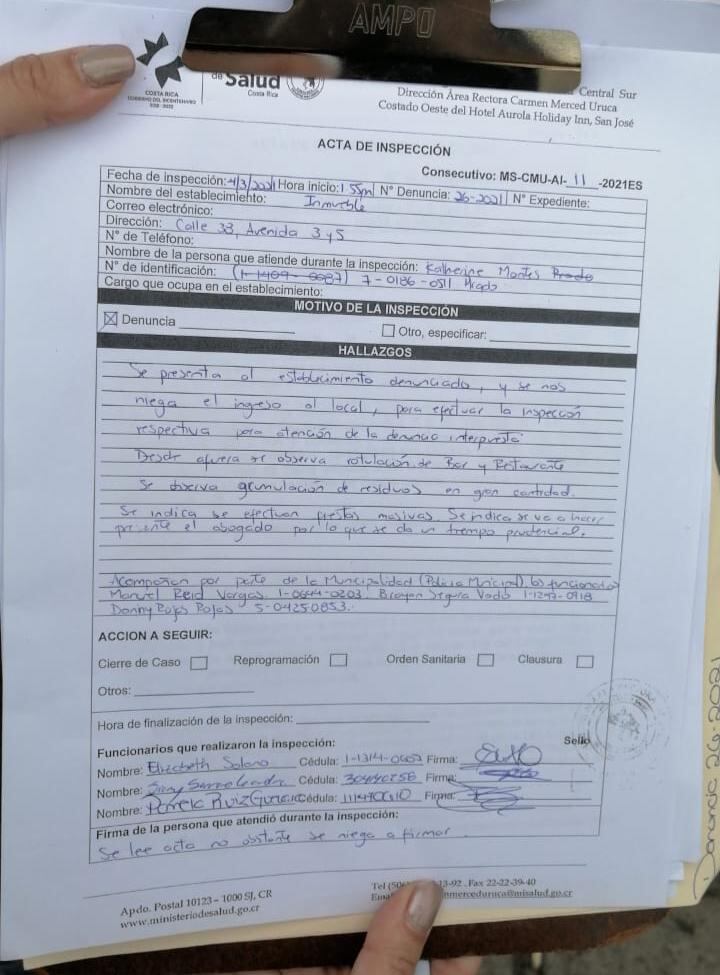 AMPO
COSTA RICA
GOBIERNO DEL BICENTENARIO
de Salud
Costa Rica
Central Sur
Dirección Área Rectora Carmen Merced Uruca
Costado Oeste del Hotel Aurola Holiday Inn, San José
ACTA DE INSPECCIÓN
Consecutivo: MS-CMU-AI- 11 -2021ES
Fecha de inspección: 4/3/2021 Hora inicio: 1:55pm N° Denuncia: 26-2021 N° Expediente:
Nombre del establecimiento: Inmueble
Correo electrónico:
Dirección: Calle 33, Avenida 3 y 5
N° de Teléfono:
Nombre de la persona que atiende durante la inspección: Katherine Montes
N° de identificación: 7-0186-0511
Cargo que ocupa en el establecimiento:
MOTIVO DE LA INSPECCIÓN
Denuncia Otro, especificar:
HALLAZGOS
Se presenta al establecimiento denunciado, y se nos
niega el ingreso al local, para efectuar la inspección
respectiva para atención de la denuncia interpuesta
Desde afuera se observa rotulación de Bar y Restaurante
Se observa acumulación de residuos en gran cantidad.
Se indica se efectuan fiestas masivas. Se indica se va a hacer
presente el abogado por lo que se da un tiempo prudencial.
Acompañan por parte de la Municipalidad (Policia Municipal) los funcionarios
Manuel Reid Vargas. 1-0644-0203. Brayan Segura 1-1297-0918
Danny Rojas Rojas 5-0425-0853.
ACCION A SEGUIR:
Cierre de Caso Reprogramación Orden Sanitaria Clausura
Otros:
Hora de finalización de la inspección:
Funcionarios que realizaron la inspección: Sello
Nombre: Elizabeth Solano Cédula: Firma:
Nombre: Cédula: Firma:
Nombre: Pamela Ruiz Cédula: Firma:
Firma de la persona que atendió durante la inspección:
Se lee acta no obstante se niega a firmar
Apdo. Postal 10123 – 1000 SJ, CR
www.ministeriodesalud.go.cr
Fax 22-22-39-40
Denuncia 26-2021